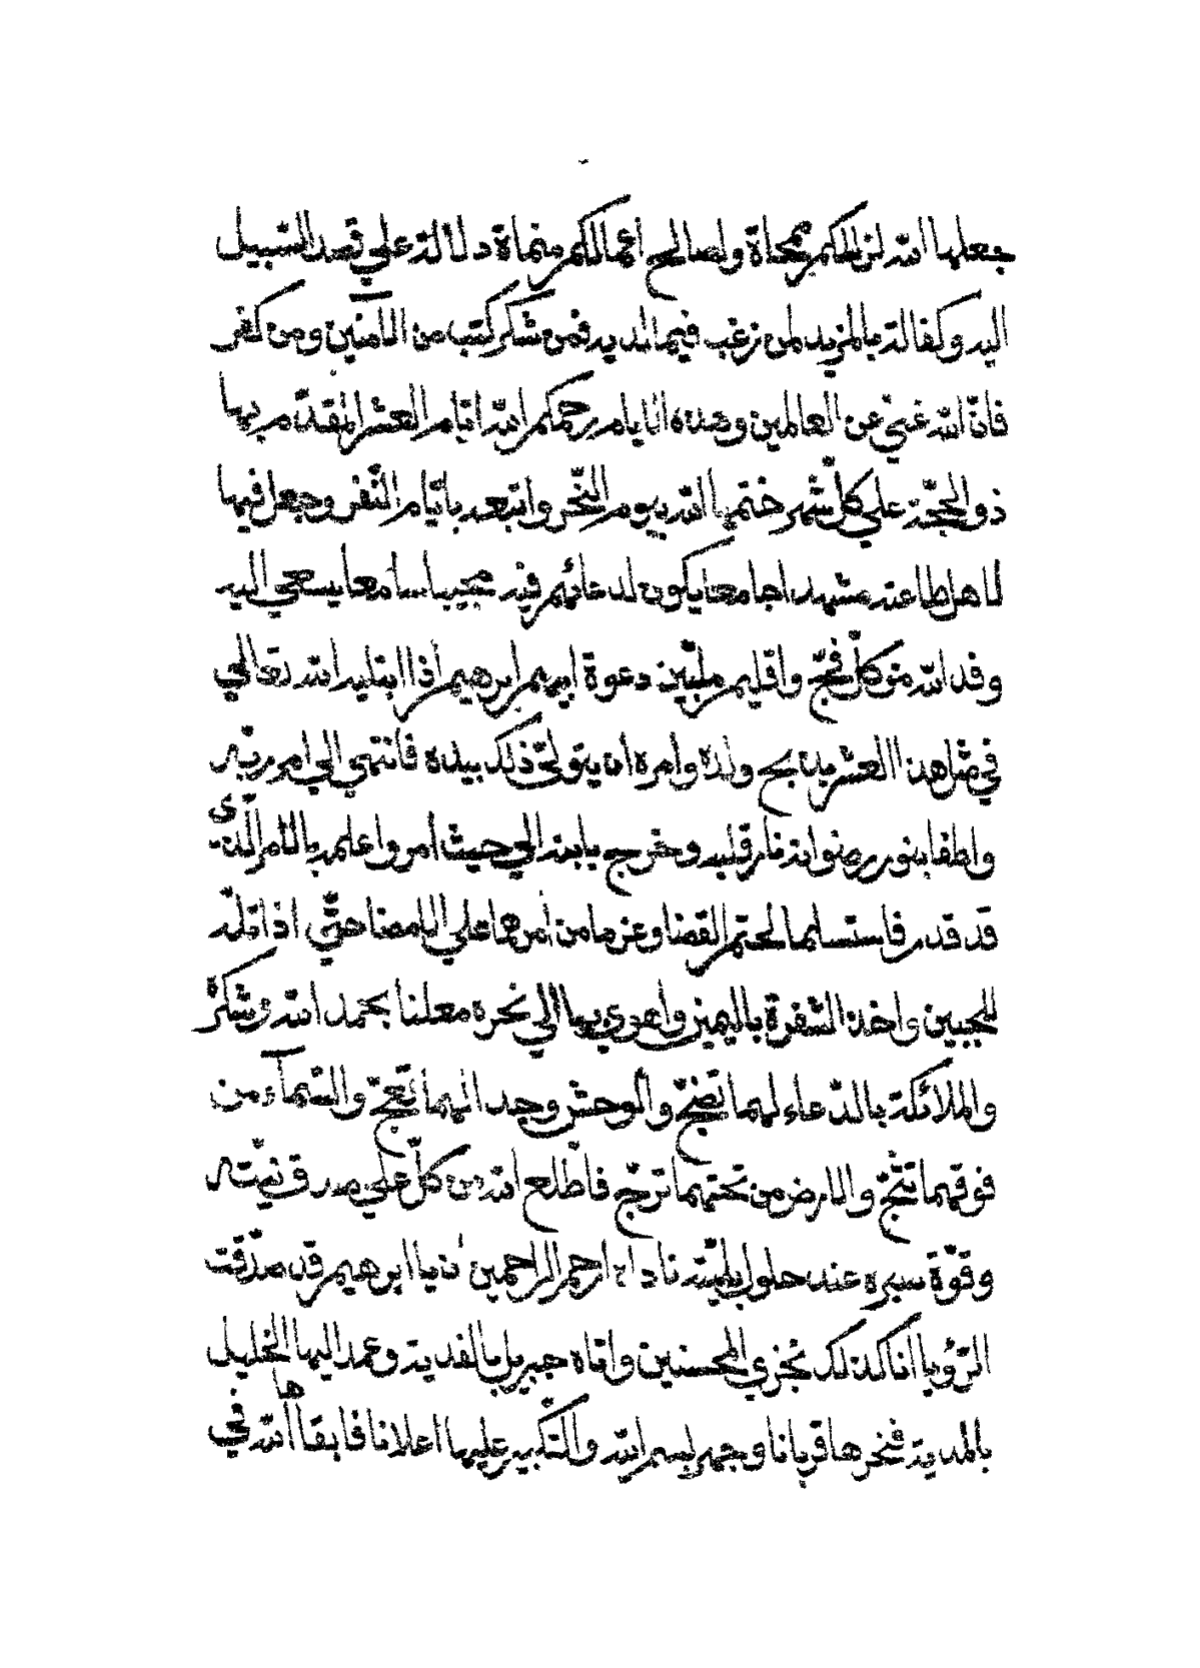 جعلها الله لزللكم ممحاة ولصالح اعمالكم منماة دلالة علي قصد السبيل
اليه وكفالة بالمزيد لمن رغب فيما لديه فمن شكر كتب من الآمنين ومن كفر
فانّ الله غنيّ عن العالمين وهذه الايام رحمكم الله ايّام العشر المقدّم بها
ذو الحجّة علي كلّ شهر ختمها الله بيوم النّحر واتبعه بايّام النّفر وجعل فيها
لاهل طاعته مشهدا جامعا يكون لدعائهم فيه مجيبا سامعا يسعي اليه
وفد الله من كلّ فجّ واقليم ملبّين دعوة ابيهم ابرهيم اذا ابتليه الله تعالي
في مثل هذا العشر بذبح ولده وامره ان يتولّي ذلك بيده فانتهي الي امر ربّه
واطفا بنور رضوانه نار قلبه وخرج بابنه الي حيث أمر واعلمه بالامر الّذي
قد قدر فاستسلما لحتم القضا وعزما من أمرهما علي الامضا حتّي اذا تلّه
للجبين واخذ الشفرة باليمين وأهوي بها الي نحره معلنا بحمد الله وشكره
والملائكة بالدّعاء لهما تضجّ والوحش وجدا لهما تعجّ والسّمآء من
فوقهما تثجّ والارض من تحتهما ترجّ فاطّلع الله من كلّ علي صدق نيّته
وقوّة صبره عند حلول بليّته ناداه ارحم الراحمين ان يا ابرهيم قد صدّقت
الرّؤيا انا كذلك نجزي المحسنين واتاه جبريل بالفدية وعمد اليها الخليل
بالمدية فنحرها قربانا وجهر بسم الله والتّكبير عليها اعلانا فابقاها الله في